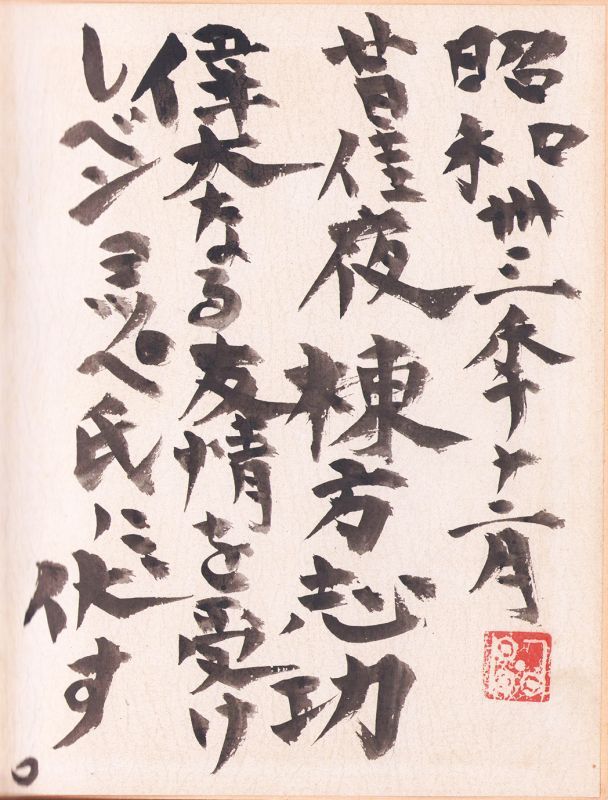 昭和卅三年十二月
昔佳夜 棟方志功
偉大なる友情を受け
レベンヨッペ氏に伏す